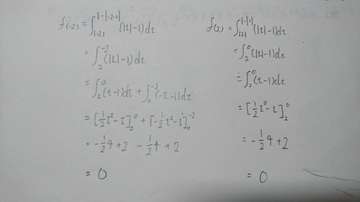 f(-2) = ∫_{|-2|}^{1-|-2+2|} (|t|-1)dt
= ∫_2^{-2} (|t|-1)dt
= ∫_2^0 (t-1)dt + ∫_0^{-2} (-t-1)dt
= [½t²-t]_2^0 + [-½t²-t]_0^{-2}
= -½4+2 -½4+2
= 0
(|t|-1)dt
= ∫_2^0 (|t|-1)dt
= ∫_2^0 (t-1)dt
= [½t²-t]_2^0
= -½4+2
= 0